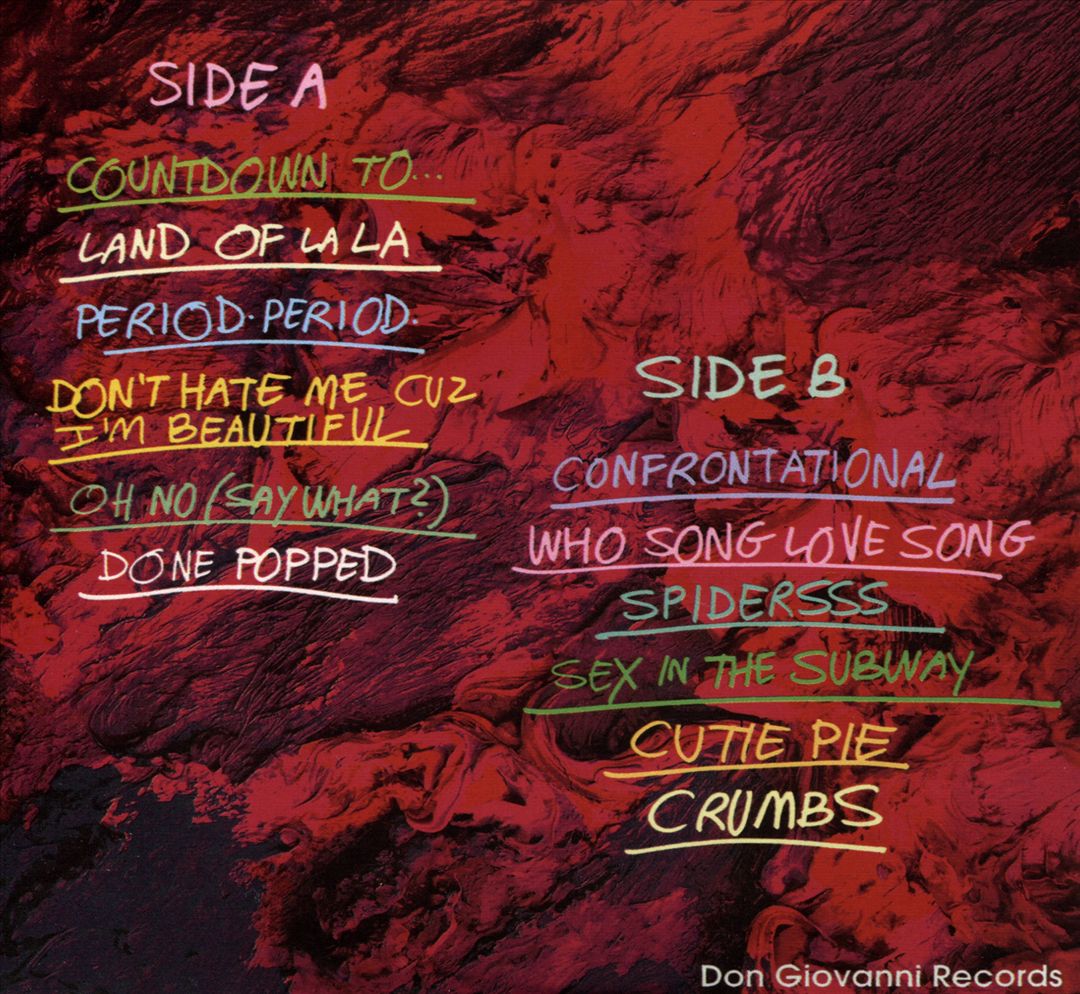 SIDE A
COUNTDOWN TO...
LAND OF LA LA
PERIOD. PERIOD.
DON'T HATE ME CUZ
I'M BEAUTIFUL
OH NO (SAY WHAT?)
DONE POPPED
SIDE B
CONFRONTATIONAL
WHO SONG LOVE SONG
SPIDERSSS
SEX IN THE SUBWAY
CUTIE PIE
CRUMBS
Don Giovanni Records